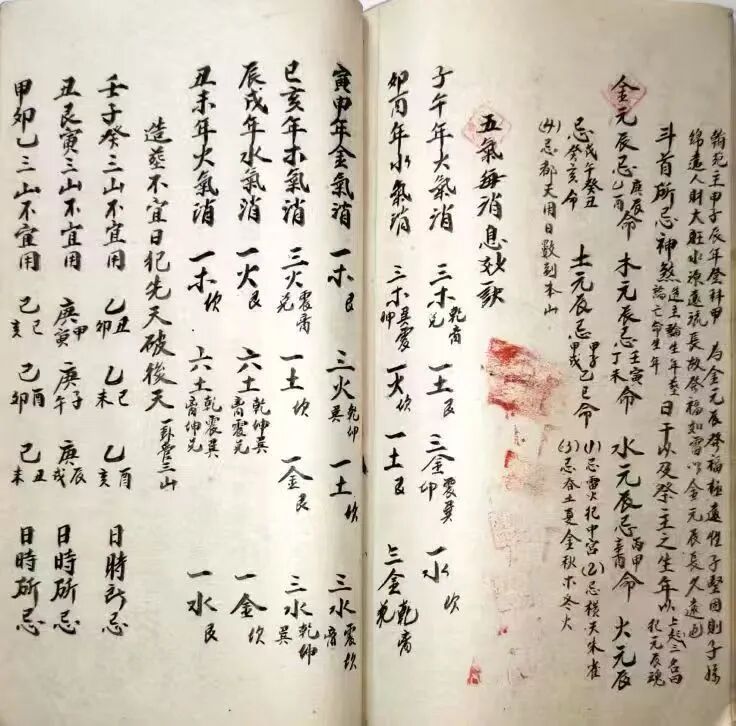 翰死主甲子辰年登科甲 為金元辰發福極遠性子堅固則子孫
綿遠人財大旺水源遠流長故發福如雷以金元辰長久遠也
斗首所忌神煞造主論生年葬論亡命生年日干以及祭主之生年以上起三名曰犯元辰魂
金元辰忌庚辰乙酉命 木元辰忌壬寅丁未命 水元辰忌丙申辛酉命 火元辰
忌戊午癸丑癸亥命 土元辰忌甲子甲戌乙巳命 (1)忌雷火犯中宮 (2)忌橫天朱雀
(3)忌春土夏金秋木冬火
(4)忌都天用日數到本山
五氣每消息妙訣
子午年大氣消 三木乾兌 一土艮 三金震巽 一水坎
卯酉年水氣消 三木巽震坤 一火坎 一土艮 三金乾兌
寅申年金氣消 一木艮 三火乾坤巽 一土坎 三水震坎
巳亥年木氣消 三火震兌 一土坎 一金艮 三水乾坤巽
辰戌年水氣消 一火艮 六土乾坤巽震兌 一金坎
丑未年火氣消 一木坎 六土乾震巽坤兌 一水艮
造葬不宜日犯先天破後天一卦管三山
壬子癸三山不宜用 乙丑 乙卯 乙巳 乙未 乙酉 乙亥 日時所忌
丑艮寅三山不宜用 庚甲寅 庚子午 庚辰戌 日時所忌
甲卯乙三山不宜用 己巳 己亥 己酉 己卯 己丑 己未 日時所忌